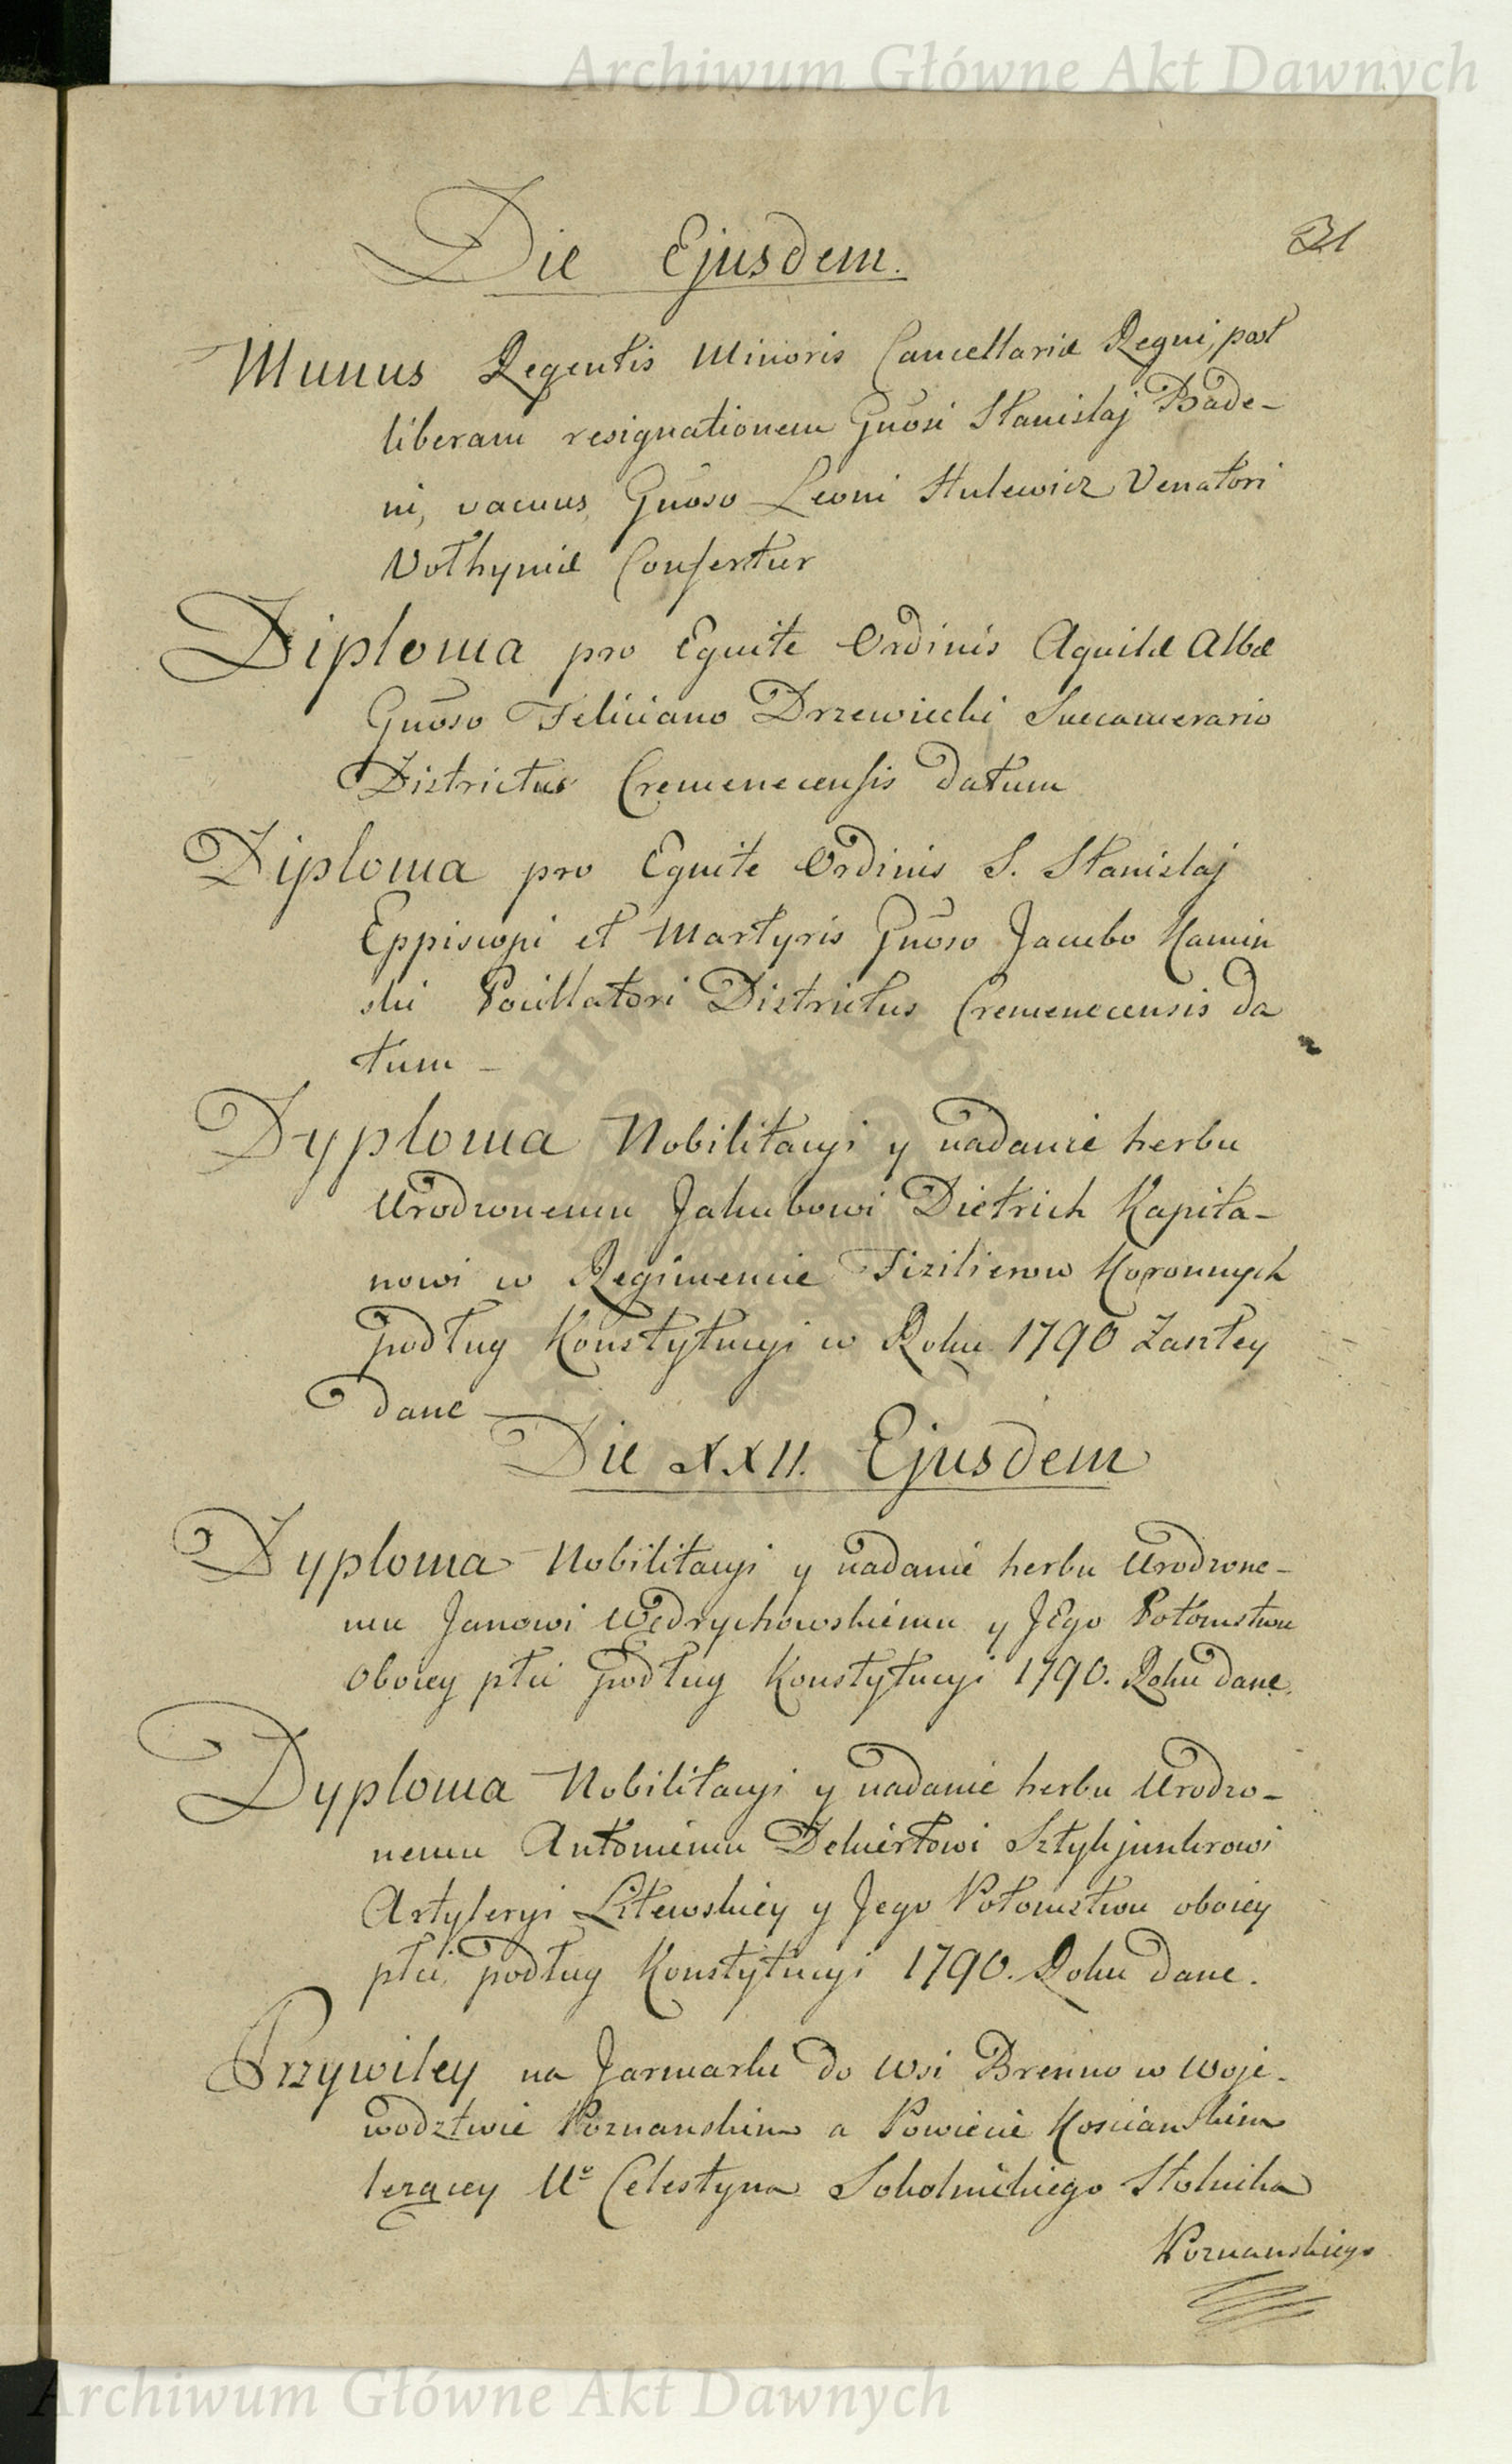 Archiwum Główne Akt Dawnych
31
Die Ejusdem.
Munus Regentis Minoris Cancellariæ Regni, post
liberam resignationem Gnōsi Stanislaj Bade-
ni, vacuus, Gnōso Leoni Hulewicz Venatori
Volhyniæ Confertur
Diploma pro Equite Ordinis Aquilæ Albæ
Gnōso Feliciano Drzewiecki Succamerario
Districtus Cremenecensis datum
Diploma pro Equite Ordinis S. Stanislaj
Eppiscopi et Martyris Gnōso Jacubo Kamin
ski Pocillatori Districtus Cremenecensis da
tum –
Dyploma Nobilitacyi y nadanie herbu
Urodzonemu Jakubowi Dietrich Kapita-
nowi w Regimencie Fizilierow Koronnych
podług Konstytucyi w Roku 1790 Zaszłey
dane –
Die XXII. Ejusdem
Dyploma Nobilitacyi y nadanie herbu Urodzone-
mu Janowi Wędrychowskiemu y JEgo Potomstwu
oboiey płci podług Konstytucyi 1790. Roku dane.
Dyploma Nobilitacyi y nadanie herbu Urodzo-
nemu Antoniemu Dekiertowi Sztykjunkrowi
Artyleryi Litewskiey y Jego Potomstwu oboiey
płci, podług Konstytucyi 1790. Roku dane.
Przywiley na Jarmarki do Wsi Brenno w Woje-
wodztwie Poznanskim a Powiecie Kosciańskim
lezącey Uº Celestyna Sokolnickiego Stolnika
Poznanskiego
Archiwum Główne Akt Dawnych